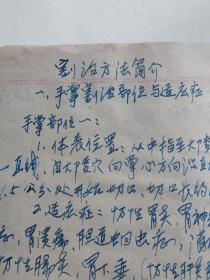 割治方法简介
一、手掌割治部位与适应症
手掌部位一：
1.体表位置：从中指至大陵
一直线，由大陵穴向掌心方向沿直
1.5公分处开始切口，切口长约
2.适应症：慢性胃炎、胃神
病、胃溃疡、胆道蛔虫病、
慢性肠炎、胃下垂、慢性肝